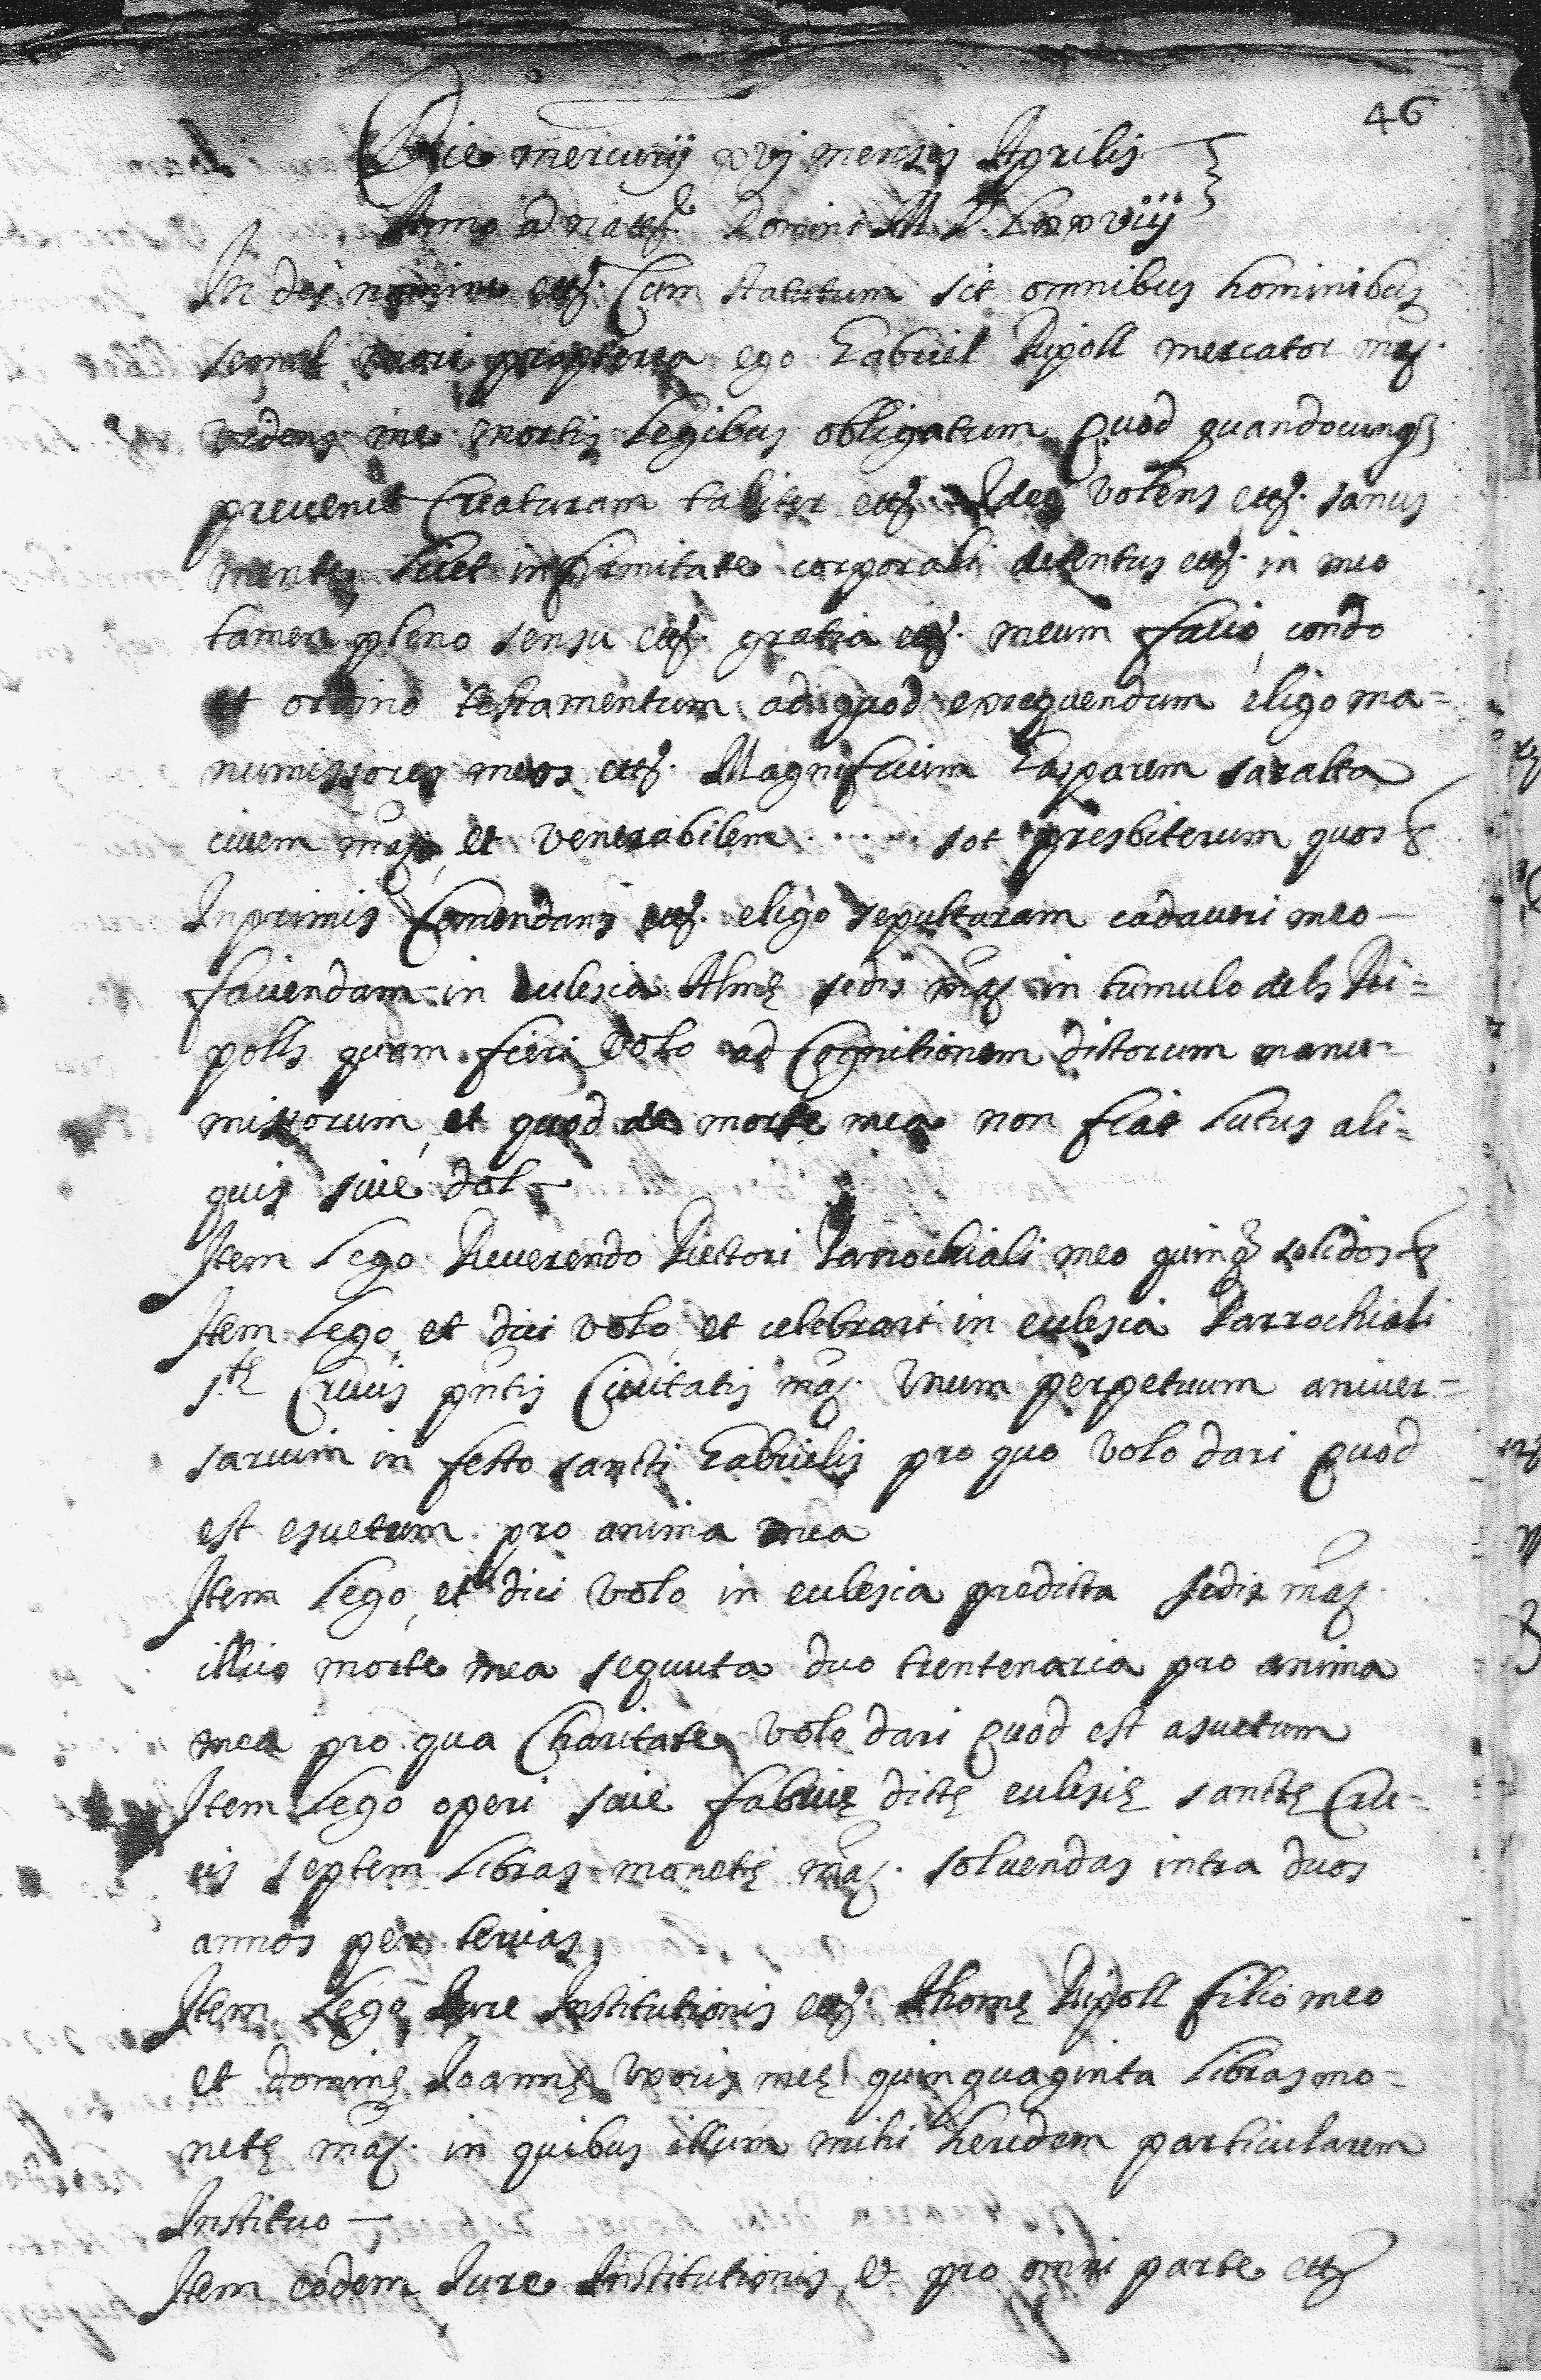 46
Die mercurij xvj mensis Aprilis
Anno a natte. Domini M. D. Lxxviij
In dei nomine ettz. Cum statutum sit omnibus hominibus
semel mori propterea ego Gabriel Ripoll mercator maz.
videns me mortis legibus obligatum Quod quandocunqz
prevenit Creaturam taliter ettz. Ideo volens ettz. sanus
mente, licet infirmitate corporali detentus ettz. in meo
tamen pleno sensu ettz. gratia ettz. meum facio, condo
et ordino testamentum, ad quod exequendum eligo ma=
numissores meos ettz. Magnificum Gasparem saralta
civem maz., et venerabilem . . . . . sot presbiterum quos
Inprimis Comendans ettz. eligo sepulturam cadaveri meo
faciendam in eclesia Almę sedis maz. in tumulo dels Ri=
polls quam fieri volo ad Cognitionem dictorum manu=
missorum, et quod de morte mea non fiat luctus ali=
quis sive dol
Item lego Reverendo Rectori Parrochiali meo quinqz solidos
Item lego, et dici volo, et celebrari in eclesia Parrochiali
stę Crucis pntis Civitatis maz. Unum perpetuum aniver=
sarium in festo sancti Gabrielis pro quo volo dari Quod
est esuetum pro anima mea
Item lego, et dici volo in eclesia predicta sedis maz.
illico morte mea sequuta duo trentenaria pro anima
mea pro qua Charitate, volo dari Quod est asuetum
Item lego operi sive fabricę dictę eclesię sanctę Cru=
cis septem libras monetę maz. solvendas intra duos
annos per tercias
Item lego Iure Institutionis ettz. Thomę Ripoll filio meo
et dominę Ioannę Uxoris meę quinquaginta libras mo=
netę maz. in quibus illum mihi heredem particularem
Instituo
Item eodem Iure Institutionis et pro omni parte ettz